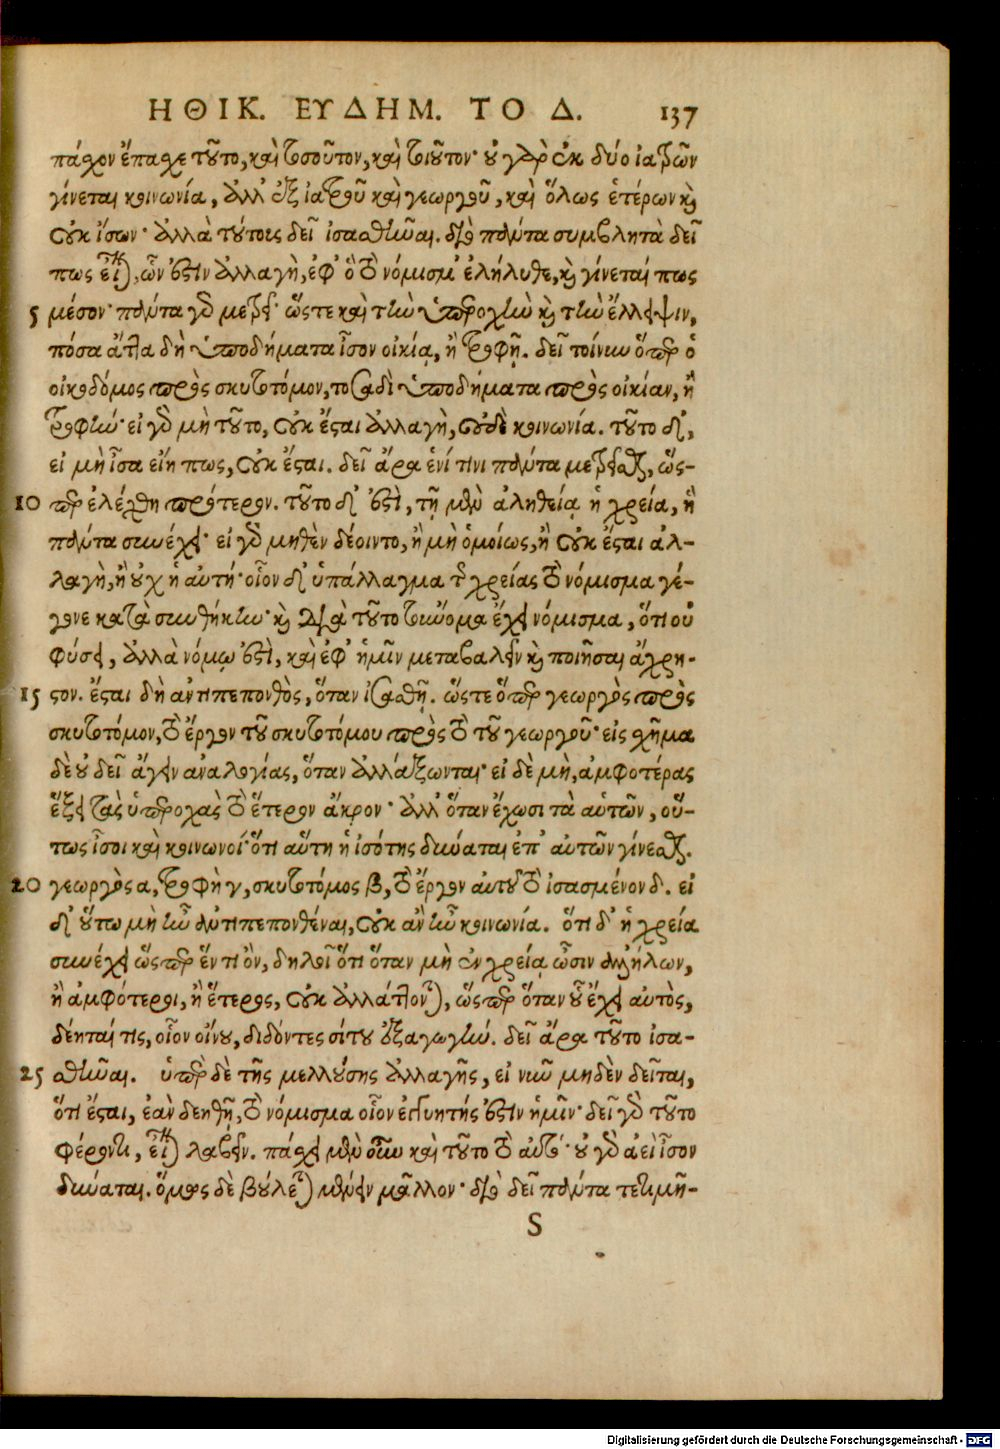 ΗΘΙΚ. ΕΥΔΗΜ. ΤΟ Δ. 137
πάσχον ἔπασχε τοῦτο, καὶ τοσοῦτον, καὶ τοιοῦτον· οὐ γὰρ ἐκ δύο ἰατρῶν
γίνεται κοινωνία, ἀλλ' ἐξ ἰατροῦ καὶ γεωργοῦ, καὶ ὅλως ἑτέρων καὶ
οὐκ ἴσων· ἀλλὰ τούτους δεῖ ἰσασθῆναι. διὸ πάντα συμβλητὰ δεῖ
πως εἶναι, ὧν ἐστὶν ἀλλαγὴ, ἐφ' ὃ τὸ νόμισμ' ἐλήλυθε, καὶ γίνεταί πως
5 μέσον· πάντα γὰρ μετρεῖ· ὥστε καὶ τὴν ὑπεροχὴν καὶ τὴν ἔλλειψιν,
πόσα ἄττα δὴ ὑποδήματα ἶσον οἰκίᾳ, ἢ τροφῇ. δεῖ τοίνυν ὅπερ ὁ
οἰκοδόμος πρὸς σκυτοτόμον, τοσαδὶ ὑποδήματα πρὸς οἰκίαν, ἢ
τροφήν· εἰ γὰρ μὴ τοῦτο, οὐκ ἔσται ἀλλαγὴ, οὐδὲ κοινωνία. τοῦτο δ',
εἰ μὴ ἶσα εἴη πως, οὐκ ἔσται. δεῖ ἄρα ἑνί τινι πάντα μετρεῖσθαι, ὥς-
10 περ ἐλέχθη πρότερον. τοῦτο δ' ἐστὶ, τῇ μὲν ἀληθείᾳ ἡ χρεία, ἣ
πάντα συνέχει· εἰ γὰρ μηθὲν δέοιντο, ἢ μὴ ὁμοίως, ἢ οὐκ ἔσται ἀλ-
λαγὴ, ἢ οὐχ ἡ αὐτή· οἷον δ' ὑπάλλαγμα τῆς χρείας τὸ νόμισμα γέ-
γονε κατὰ συνθήκην· καὶ διὰ τοῦτο τοὔνομα ἔχει νόμισμα, ὅτι οὐ
φύσει, ἀλλὰ νόμῳ ἐστὶ, καὶ ἐφ' ἡμῖν μεταβαλεῖν καὶ ποιῆσαι ἄχρη-
15 στον. ἔσται δὴ ἀντιπεπονθὸς, ὅταν ἰσασθῇ. ὥστε ὅπερ γεωργὸς πρὸς
σκυτοτόμον, τὸ ἔργον τοῦ σκυτοτόμου πρὸς τὸ τοῦ γεωργοῦ· εἰς σχῆμα
δὲ οὐ δεῖ ἄγειν ἀναλογίας, ὅταν ἀλλάξωνται· εἰ δὲ μὴ, ἀμφοτέρας
ἕξει τὰς ὑπεροχὰς τὸ ἕτερον ἄκρον· ἀλλ' ὅταν ἔχωσι τὰ αὑτῶν, οὕ-
τως ἶσοι καὶ κοινωνοί· ὅτι αὕτη ἡ ἰσότης δύναται ἐπ' αὐτῶν γίνεσθαι.
20 γεωργὸς α, τροφὴ γ, σκυτοτόμος β, τὸ ἔργον αὐτοῦ τὸ ἰσασμένον δ. εἰ
δ' οὕτω μὴ ἦν ἀντιπεπονθέναι, οὐκ ἂν ἦν κοινωνία. ὅτι δ' ἡ χρεία
συνέχει ὥσπερ ἕν τι ὂν, δηλοῖ ὅτι ὅταν μὴ ἐν χρείᾳ ὦσιν ἀλλήλων,
ἢ ἀμφότεροι, ἢ ἕτερος, οὐκ ἀλλάττονται, ὥσπερ ὅταν οὗ ἔχει αὐτὸς,
δέηταί τις, οἷον οἴνου, διδόντες σίτου ἐξαγωγήν. δεῖ ἄρα τοῦτο ἰσα-
25 σθῆναι. ὑπὲρ δὲ τῆς μελλούσης ἀλλαγῆς, εἰ νῦν μηδὲν δεῖται,
ὅτι ἔσται, ἐὰν δεηθῇ, τὸ νόμισμα οἷον ἐγγυητής ἐστὶν ἡμῖν· δεῖ γὰρ τοῦτο
φέροντι, εἶναι λαβεῖν. πάσχει μὲν οὖν καὶ τοῦτο τὸ αὐτό· οὐ γὰρ ἀεὶ ἶσον
δύναται. ὅμως δὲ βούλεται μένειν μᾶλλον· διὸ δεῖ πάντα τετιμῆ-
S
Digitalisierung gefördert durch die Deutsche Forschungsgemeinschaft - DFG